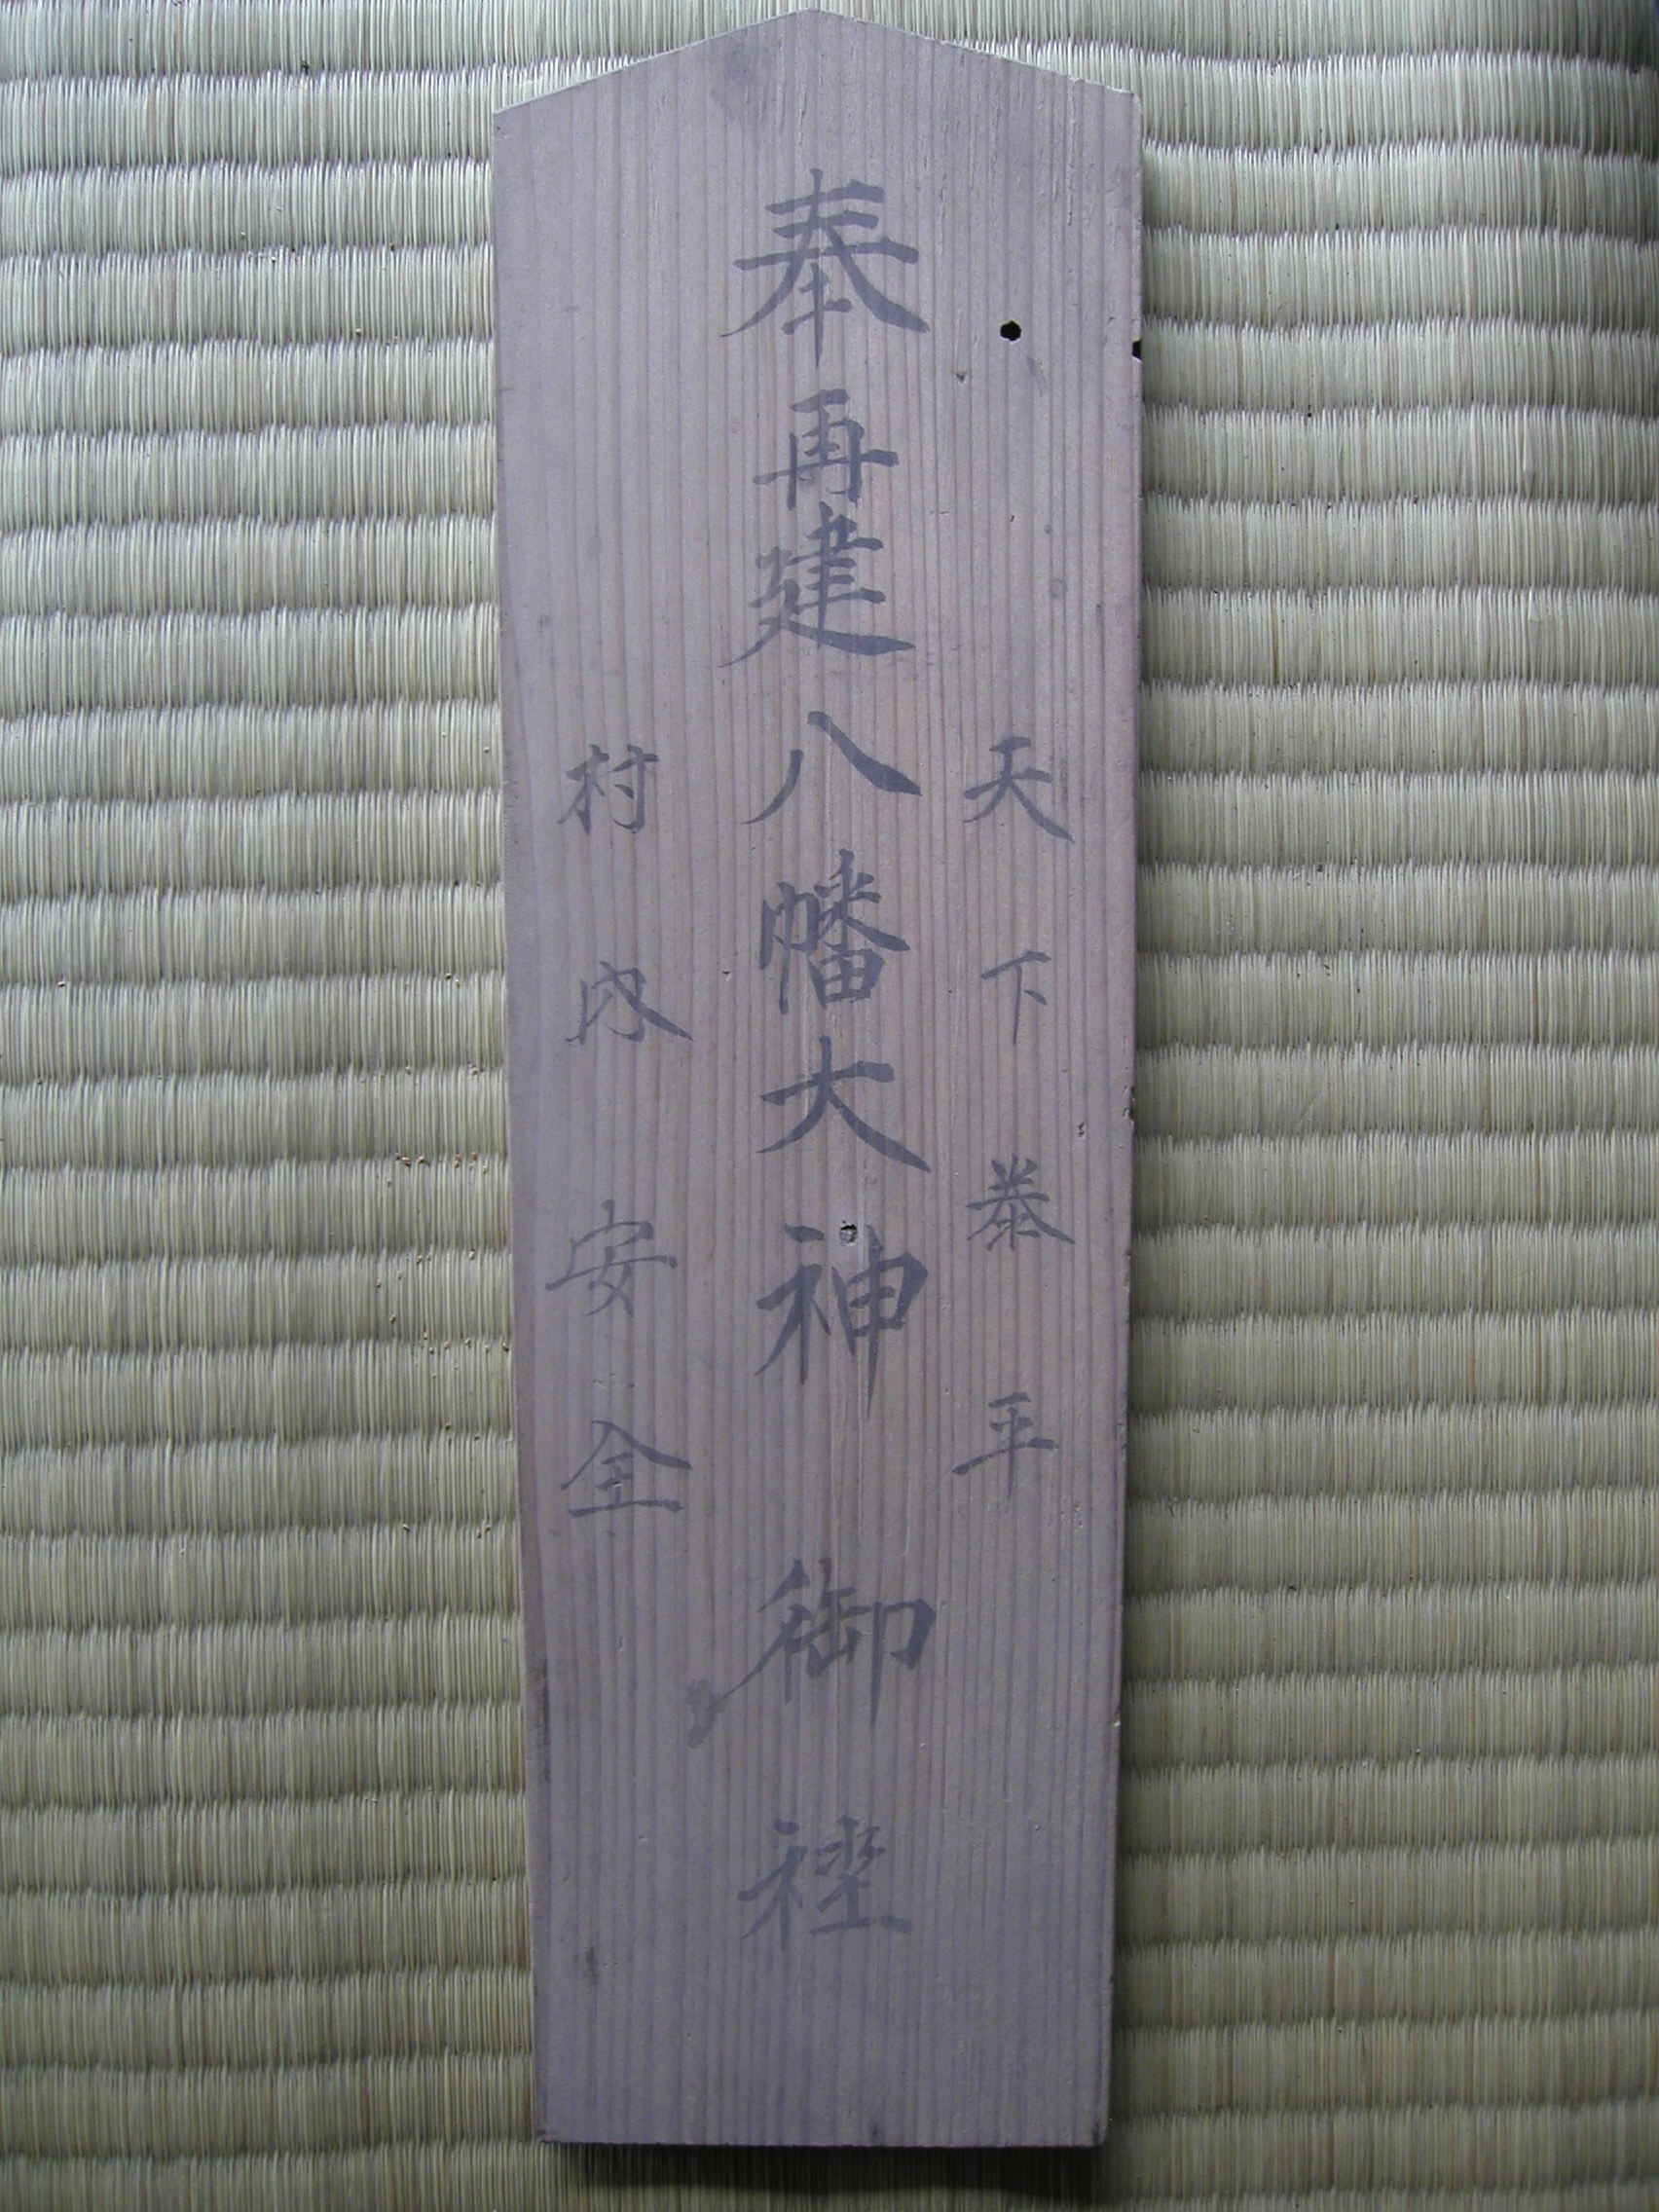 天下泰平
奉再建八幡大神御
村内安全